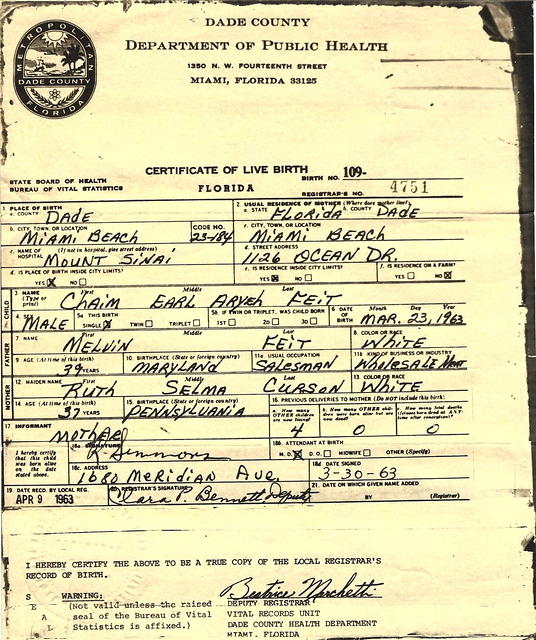 DADE COUNTY
DEPARTMENT OF PUBLIC HEALTH
1350 N. W. FOURTEENTH STREET
MIAMI, FLORIDA 33125
METROPOLITAN
DADE COUNTY
FLORIDA
CERTIFICATE OF LIVE BIRTH
BIRTH NO. 109-
STATE BOARD OF HEALTH
BUREAU OF VITAL STATISTICS
FLORIDA
REGISTRAR'S NO. 4751
1 PLACE OF BIRTH
a. COUNTY DADE
2. USUAL RESIDENCE OF MOTHER (Where does mother live?)
a. STATE FLORIDA b. COUNTY DADE
b. CITY, TOWN, OR LOCATION MIAMI BEACH
CODE NO. 23-184
c. CITY, TOWN, OR LOCATION MIAMI BEACH
c. NAME OF HOSPITAL (If not in hospital, give street address) MOUNT SINAI
d. STREET ADDRESS 1126 OCEAN DR.
d. IS PLACE OF BIRTH INSIDE CITY LIMITS? YES NO
e. IS RESIDENCE INSIDE CITY LIMITS? YES NO
f. IS RESIDENCE ON A FARM? YES NO
CHILD
3 NAME (Type or print) First Middle Last
CHAIM EARL ARYEH FEIT
4. MALE
5a THIS BIRTH SINGLE TWIN TRIPLET
5b IF TWIN OR TRIPLET, WAS CHILD BORN 1ST 2D 3D
6 DATE OF BIRTH Month Day Year
MAR. 23, 1963
FATHER
7 NAME First Middle Last
MELVIN FEIT
8. COLOR OR RACE WHITE
9 AGE (At time of this birth) 39 YEARS
10. BIRTHPLACE (State or foreign country) MARYLAND
11a. USUAL OCCUPATION SALESMAN
11b KIND OF BUSINESS OR INDUSTRY WHOLESALE MEAT
MOTHER
12 MAIDEN NAME First Middle Last
RUTH SELMA CURSON
13. COLOR OR RACE WHITE
14. AGE (At time of this birth) 37 YEARS
15 BIRTHPLACE (State or foreign country) PENNSYLVANIA
16 PREVIOUS DELIVERIES TO MOTHER (Do NOT include this birth)
a. How many OTHER children are now living? 4
b. How many OTHER children were born alive but are now dead? 0
0
17 INFORMANT MOTHER
I hereby certify that this child was born alive on the date stated above.
18a SIGNATURE R. Simmons
18b. ATTENDANT AT BIRTH
M. D. D. O. MIDWIFE OTHER (Specify)
18c. ADDRESS 1680 MERIDIAN AVE.
18d DATE SIGNED 3-30-63
19 DATE RECD. BY LOCAL REG. APR 9 1963
20 REGISTRAR'S SIGNATURE Clara P. Bennett Deputy
21. DATE ON WHICH GIVEN NAME ADDED
BY (Registrar)
I HEREBY CERTIFY THE ABOVE TO BE A TRUE COPY OF THE LOCAL REGISTRAR'S
RECORD OF BIRTH.
S E A L
WARNING:
(Not valid unless the raised
seal of the Bureau of Vital
Statistics is affixed.)
Beatrice Marchetti
DEPUTY REGISTRAR
VITAL RECORDS UNIT
DADE COUNTY HEALTH DEPARTMENT
MIAMI, FLORIDA